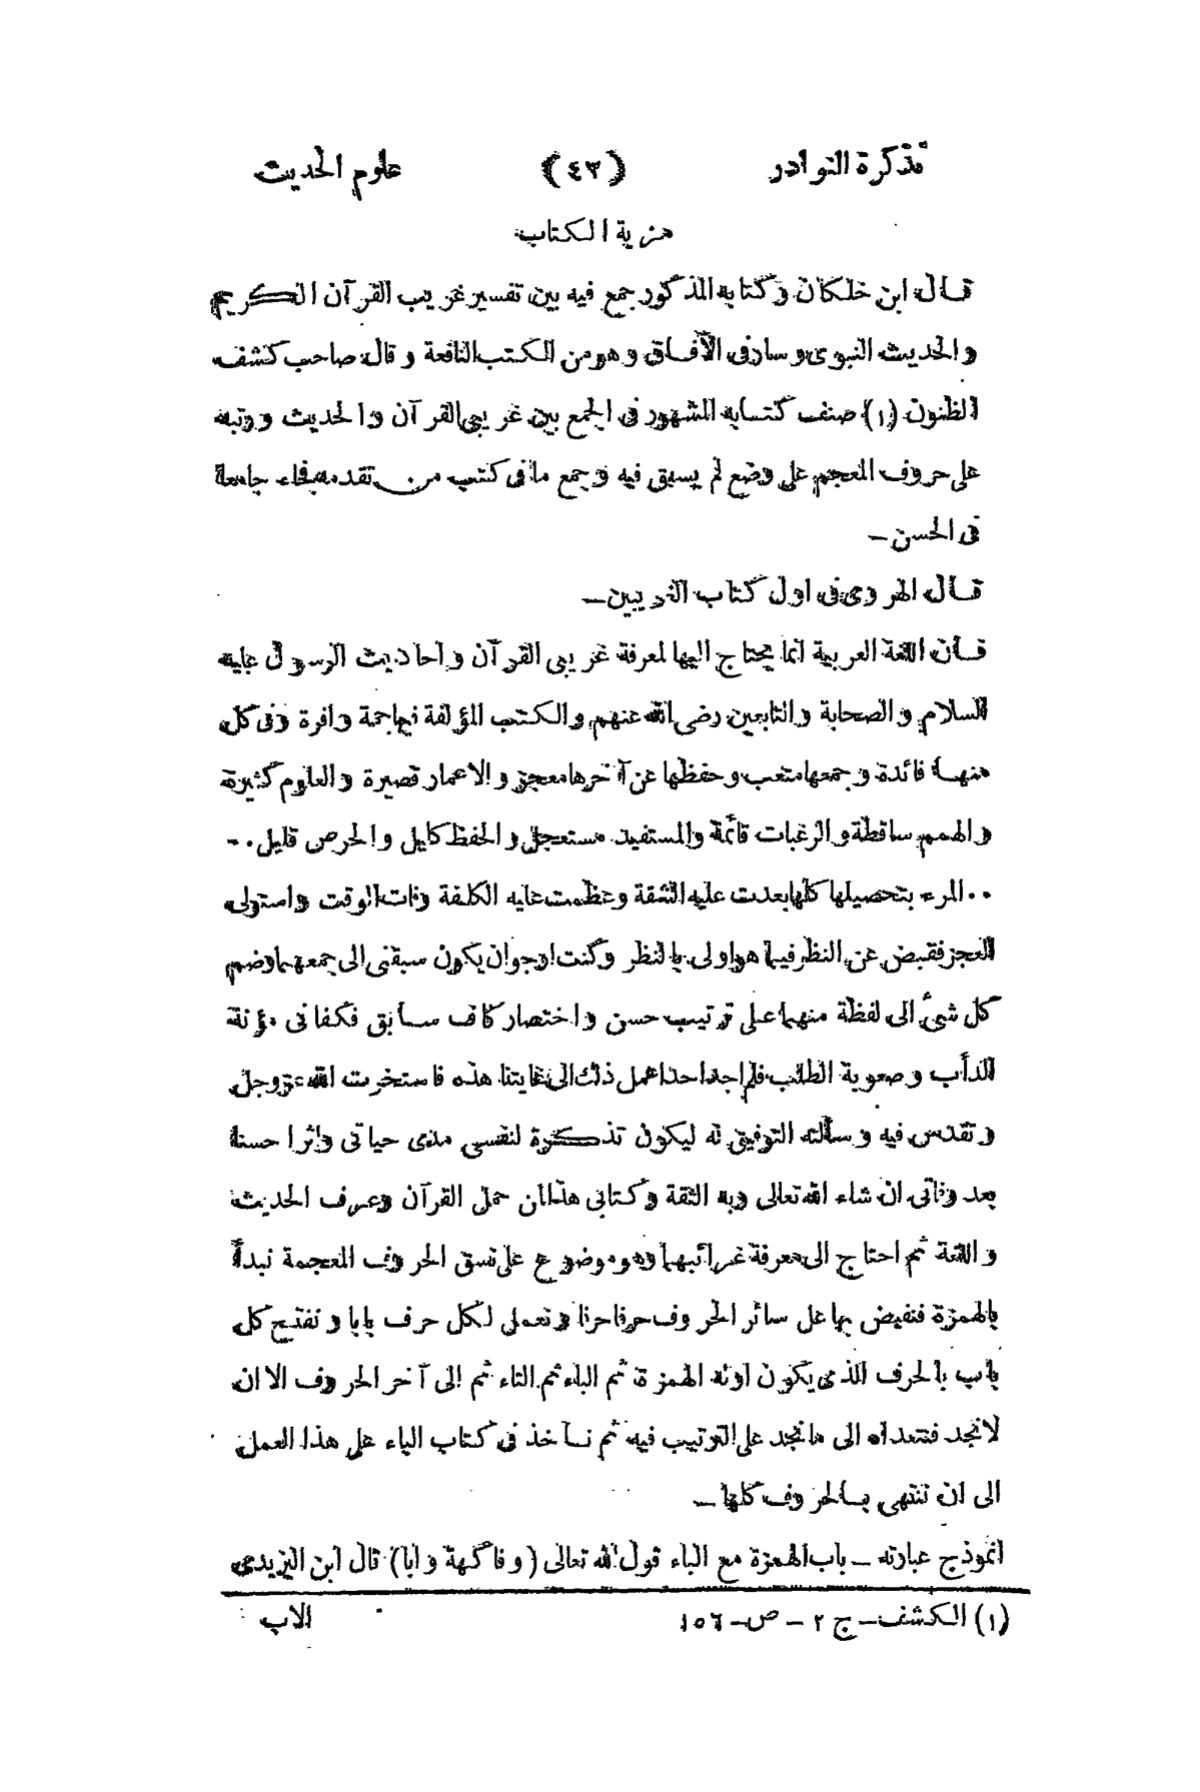 تذكرة النوادر (٤٣) علوم الحديث
مزية الكتاب
قال ابن خلكان وكتابه المذكور جمع فيه بين تفسير غريب القرآن الكريم
والحديث النبوى وسار فى الآفاق وهو من الكتب النافعة وقال صاحب كشف
الظنون (١) صنف كتابه المشهور فى الجمع بين غريبى القرآن والحديث ورتبه
على حروف المعجم على وضع لم يسبق فيه وجمع ما فى كتب من تقدمه فجاء جامعة
فى الحسن –
قال الهروى فى اول كتاب الغريبين –
فان اللغة العربية انما يحتاج اليها لمعرفة غريبى القرآن واحاديث الرسول عليه
السلام والصحابة والتابعين رضى الله عنهم والكتب المؤلفة فيها جمة وافرة وفى كل
منها فائدة وجمعها متعب وحفظها عن آخرها معجز والاعمار قصيرة والعلوم كثيرة
والهمم ساقطة والرغبات قائمة والمستفيد مستعجل والحفظ كليل والحرص قليل . -
. . المرء بتحصيلها كلها بعدت عليه الشقة وعظمت عليه الكلفة وفات الوقت واستولى
العجز فقبض عن النظر فيما هو اولى بالنظر وكنت ارجو ان يكون سبقنى الى جمعهما وضم
كل شئ الى لفظة منهما على ترتيب حسن واختصار كاف سابق فكفانى مؤنة
الدأب وصعوبة الطلب فلم اجد احدا عمل ذلك الى غايتنا هذه فاستخرت الله عزوجل
وتقدس فيه وسألته التوفيق له ليكون تذكرة لنفسى مدى حياتى واثرا حسنا
بعد وفاتى ان شاء الله تعالى وبه الثقة وكتابى هذا لمن حمل القرآن وعرف الحديث
واللغة ثم احتاج الى معرفة غرائبهما وهو موضوع على نسق الحروف المعجمة نبدأ
بالهمزة فنفيض بها على سائر الحروف حرفا حرفا ونعمل لكل حرف بابا ونفتح كل
باب بالحرف الذى يكون اوله الهمزة ثم الباء ثم التاء ثم الى آخر الحروف الا ان
لا نجد فنتعداه الى ما نجد على الترتيب فيه ثم نأخذ فى كتاب الباء على هذا العمل
الى ان ننتهى بالحروف كلها –
انموذج عبارته – باب الهمزة مع الباء قول الله تعالى (وفاكهة وابا) قال ابن اليزيدى
الاب
(١) الكشف – ج ٢ – ص – ١٥٦